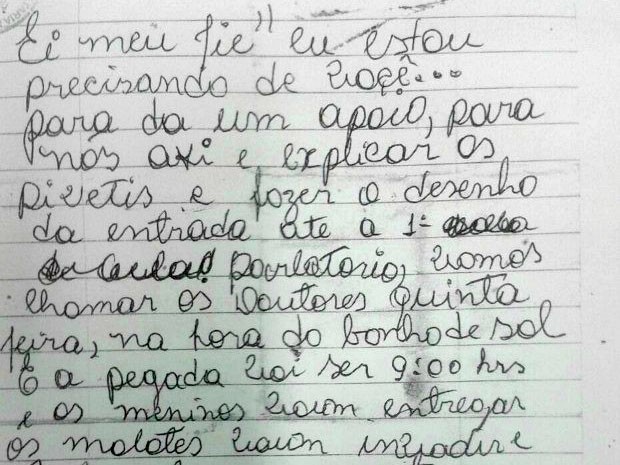 Ei meu fie" eu estou
precisando de voçê...
para da um apoio, para
nós axi e explicar os
pivetis e fozer o desenho
da entrada ate a 1ª
parlatorio, vamos
chamar os Doutores Quinta
feira, na hora do bonho de sol
E a pegada vai ser 9:00 hrs
e os meninos vaum entregar
os malotes vaum invadir e